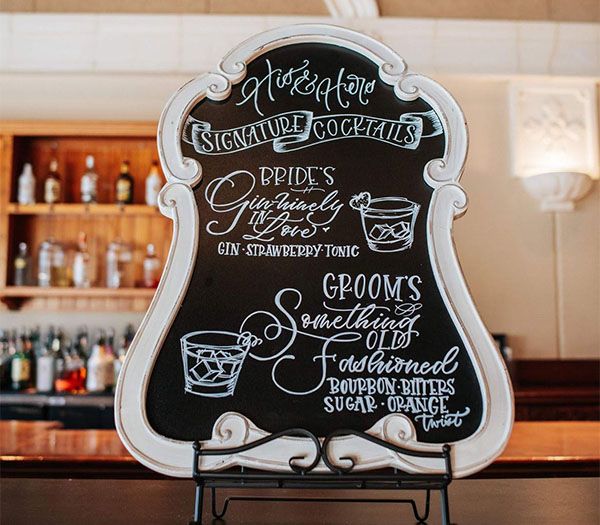 His & Hers
SIGNATURE COCKTAILS
BRIDE'S
Gin-uinely
IN Love
GIN · STRAWBERRY · TONIC
GROOM'S
Something
OLD
Fashioned
BOURBON · BITTERS
SUGAR · ORANGE
twist